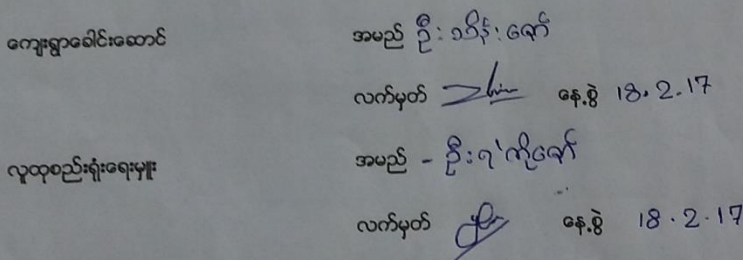 ကျေးရွာခေါင်းဆောင် အမည် ဦး
လက်မှတ် နေ့စွဲ 18.2.17
လူထုစည်းရုံးရေးမှူး အမည် - ဦး
လက်မှတ် နေ့စွဲ 18.2.17